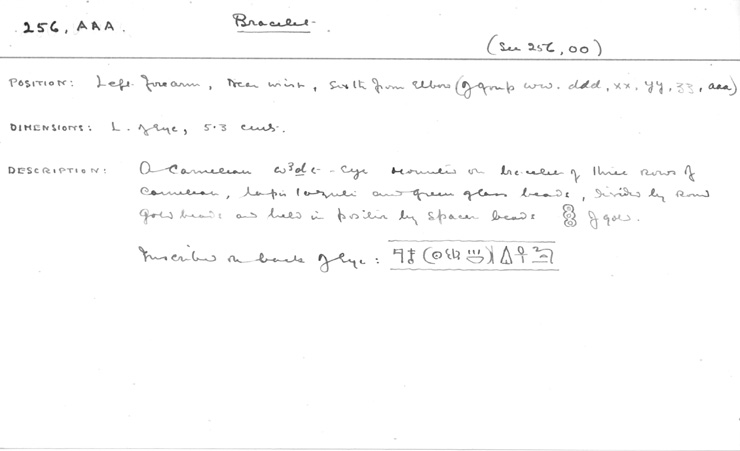 256, AAA.
Bracelet.
(See 256, OO)
POSITION: Left forearm, near wrist, sixth from elbow (of group ww. ddd, xx. yy, zz, aaa)
DIMENSIONS: L. of eye, 5.3 cms.
DESCRIPTION: A Carnelian w3ḏt-eye mounted on bracelet of three rows of
Carnelian, lapis lazuli and green glass beads, divided by round
gold beads and held in position by spacer beads of gold.
Inscribed on back of eye: